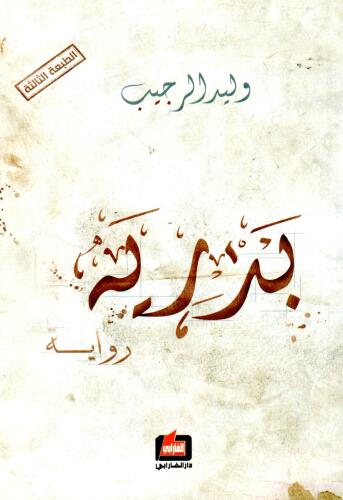 الطبعة الثالثة
وليد الرجيب
بَدرِيه
روايه
الفارابي
دار الفارابي